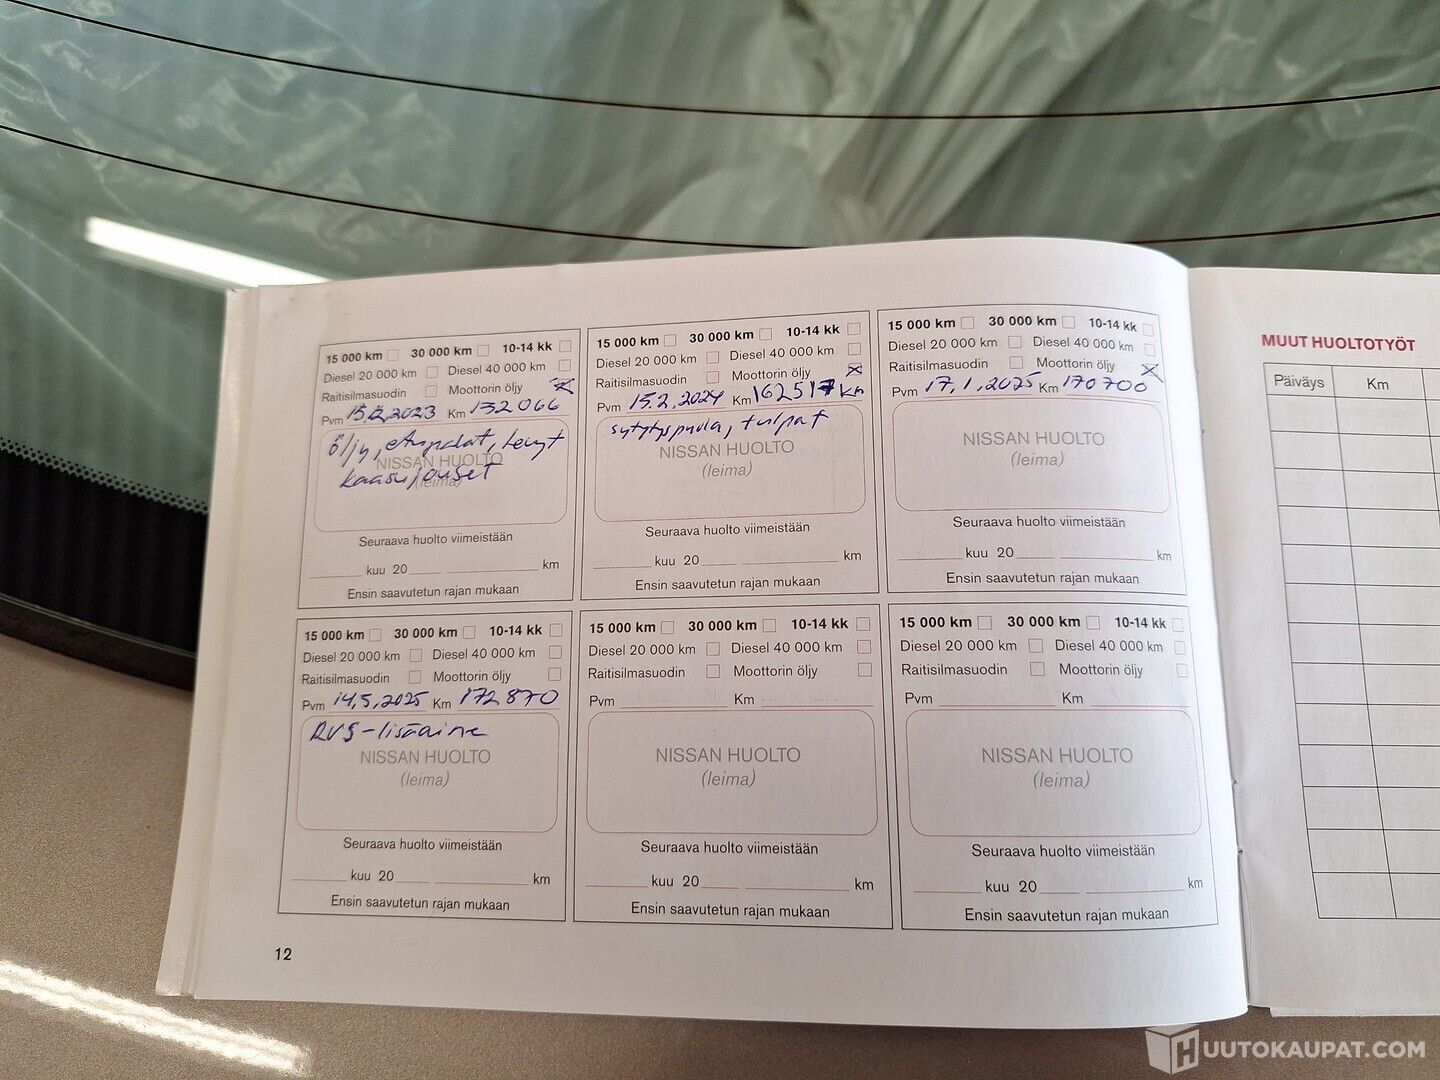 15 000 km 30 000 km 10-14 kk
Diesel 20 000 km Diesel 40 000 km
Raitisilmasuodin Moottorin öljy
Pvm 2023 Km 152066
öljy, etupalat, levyt
NISSAN HUOLTO
kaasujouset
(leima)
Seuraava huolto viimeistään
kuu 20 km
Ensin saavutetun rajan mukaan
15 000 km 30 000 km 10-14 kk
Diesel 20 000 km Diesel 40 000 km
Raitisilmasuodin Moottorin öljy
Pvm 15.2.2024 Km 162517 km
sytytyspuola, tulpat
NISSAN HUOLTO
(leima)
Seuraava huolto viimeistään
kuu 20 km
Ensin saavutetun rajan mukaan
15 000 km 30 000 km 10-14 kk
Diesel 20 000 km Diesel 40 000 km
Raitisilmasuodin Moottorin öljy
Pvm 17.1.2025 Km 170700
NISSAN HUOLTO
(leima)
Seuraava huolto viimeistään
kuu 20 km
Ensin saavutetun rajan mukaan
15 000 km 30 000 km 10-14 kk
Diesel 20 000 km Diesel 40 000 km
Raitisilmasuodin Moottorin öljy
Pvm 14.5.2025 Km 172870
RVS-lisäaine
NISSAN HUOLTO
(leima)
Seuraava huolto viimeistään
kuu 20 km
Ensin saavutetun rajan mukaan
15 000 km 30 000 km 10-14 kk
Diesel 20 000 km Diesel 40 000 km
Raitisilmasuodin Moottorin öljy
Pvm Km
NISSAN HUOLTO
(leima)
Seuraava huolto viimeistään
kuu 20 km
Ensin saavutetun rajan mukaan
15 000 km 30 000 km 10-14 kk
Diesel 20 000 km Diesel 40 000 km
Raitisilmasuodin Moottorin öljy
Pvm Km
NISSAN HUOLTO
(leima)
Seuraava huolto viimeistään
kuu 20 km
Ensin saavutetun rajan mukaan
12
MUUT HUOLTOTYÖT
Päiväys Km
HUUTOKAUPAT.COM